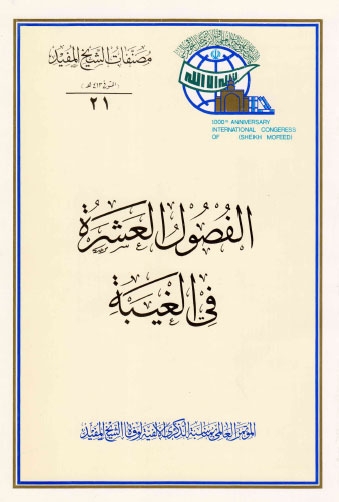 مصنفات الشيخ المفيد
(المتوفى ٤١٣ هـ)
٢١
لا إله إلا الله
1000th ANNIVERSARY
INTERNATIONAL CONGERESS
OF (SHEIKH MOFEED)
الفصول العشرة
في الغيبة
المؤتمر العالمي بمناسبة الذكرى الألفية لوفاة الشيخ المفيد